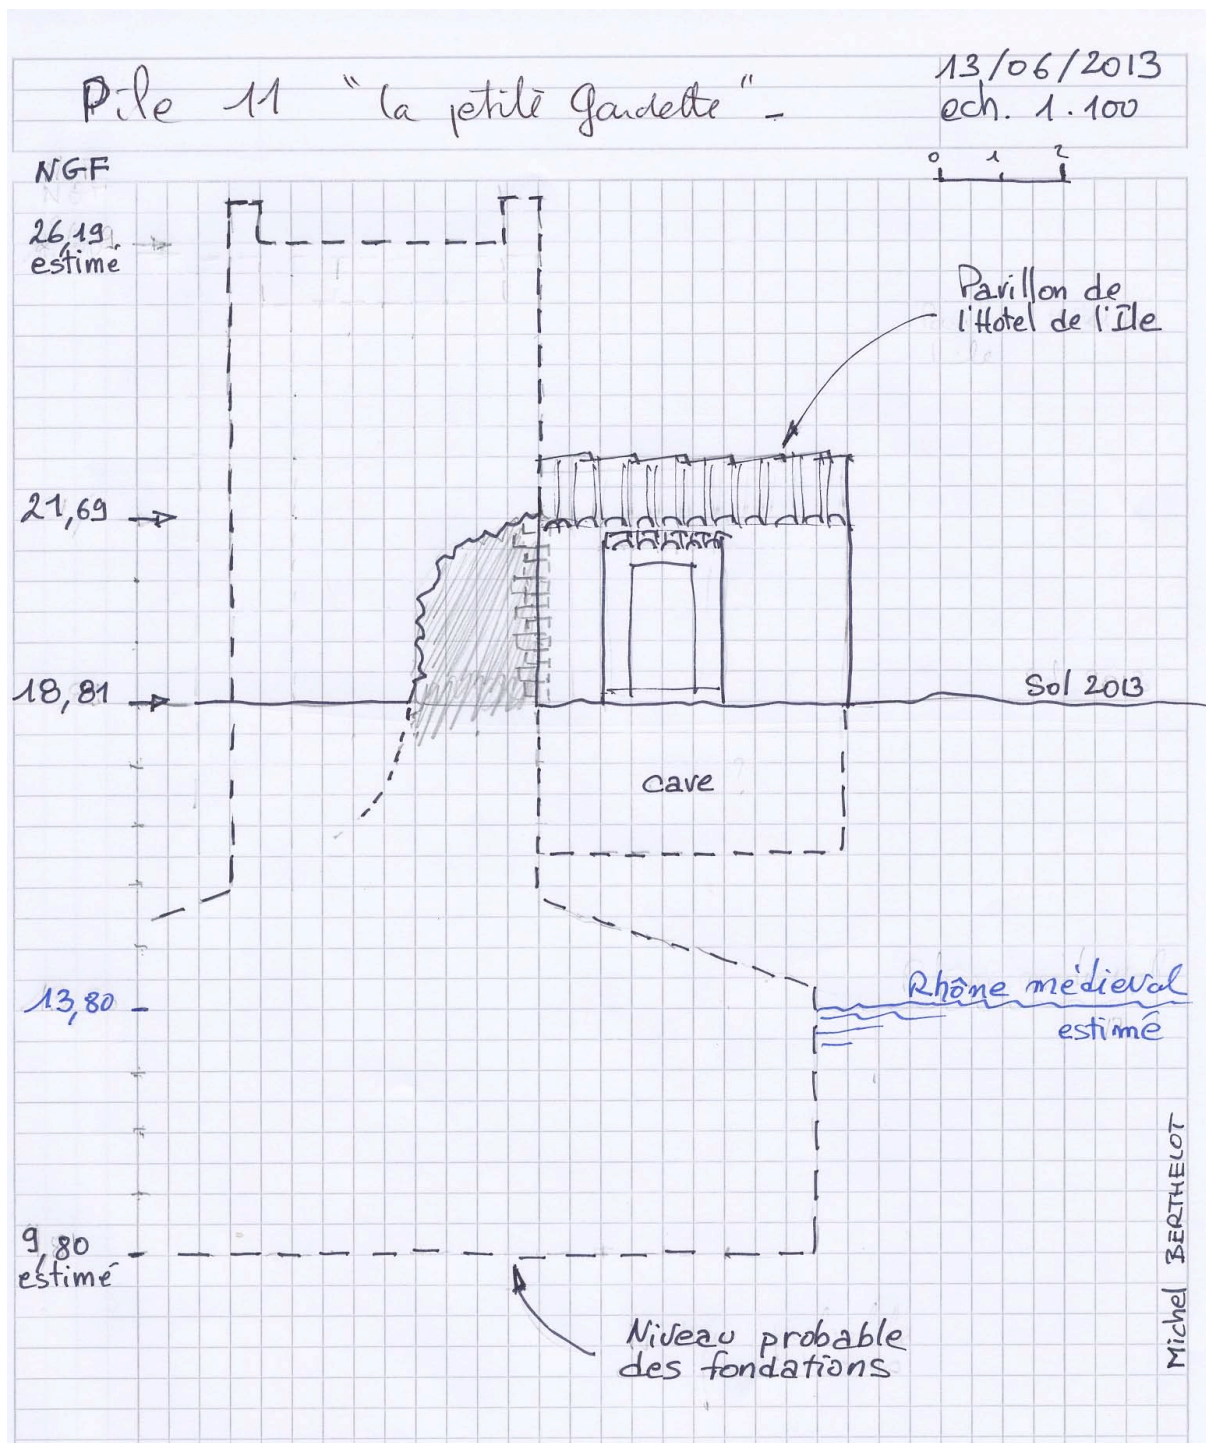 Pile 11 "la petite Gardette" -
13/06/2013
ech. 1.100
0 1 2
NGF
26,19
estimé
Pavillon de
l'Hotel de l'Ile
21,69
18,81
Sol 2013
cave
13,80
Rhône médieval
estimé
9,80
estimé
Niveau probable
des fondations
Michel BERTHELOT